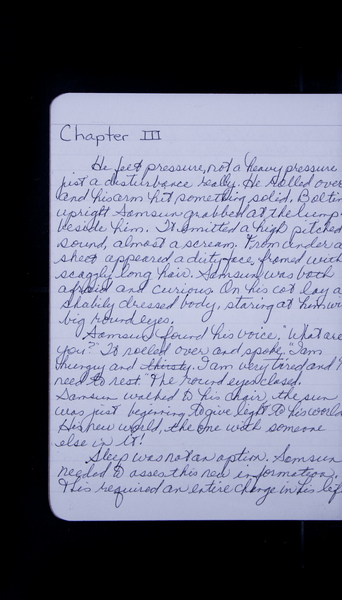 Chapter III
He feet pressure, not a heavy pressure
just a disturbance really. He rolled over
and his arm hit something solid. Boltin
upright Samsun grabbed at the lump
beside him. It emitted a high pitched
sound, almost a scream. From under a
sheet appeared a dirty face, framed with
scaggly long hair. Samsun was both
afraid and curious. On his cot lay a
shabily dressed body, staring at him wi
big round eyes.
Samsun found his voice. "What are
you?" It rolled over and spoke, "I am
hungry and thirsty. I am very tired and I
need to rest." The round eyes closed.
Samsun walked to his chair, the sun
was just beginning to give light to his world
His new world, the one with someone
else in it!
Sleep was not an option. Samsun
needed to asses this new information.
This required an entire change in his lif